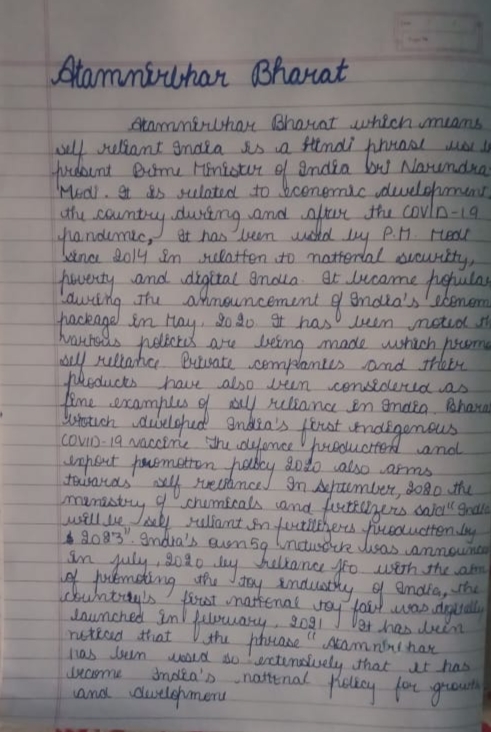 Atamnirbhar Bharat
Atamnirbhar Bharat which means
self reliant India is a Hindi phrase use
present Prime Minister of India Sri Narendra
Modi. It is related to economic development
the country during and after the COVID-19
pandemic, It has been used by P.M. Modi
since 2014 in relation to national security,
poverty and digital India. It became popular
during the announcement of India's econom
package in May, 2020. It has been noted th
various policies are being made which promo
self reliance Private companies and their
products have also been considered as
fine examples of self reliance in India. Bhara
which developed India's first indigenous
COVID-19 vaccine The defence production and
export promotion policy 2020 also aims
towards self reliance. In September, 2020 the
ministry of chemicals and fertilizers said "India
will be self reliant in fertilizers production by
2023". India's own 5g network was announce
in july, 2020 by reliance jio with the aim
of promoting the toy industry of India, the
country's first national toy fair was digitally
launched in february, 2021. It has been
noticed that the phrase "Atamnirhar
has been used so extensively that it has
become India's national policy for growth
and development